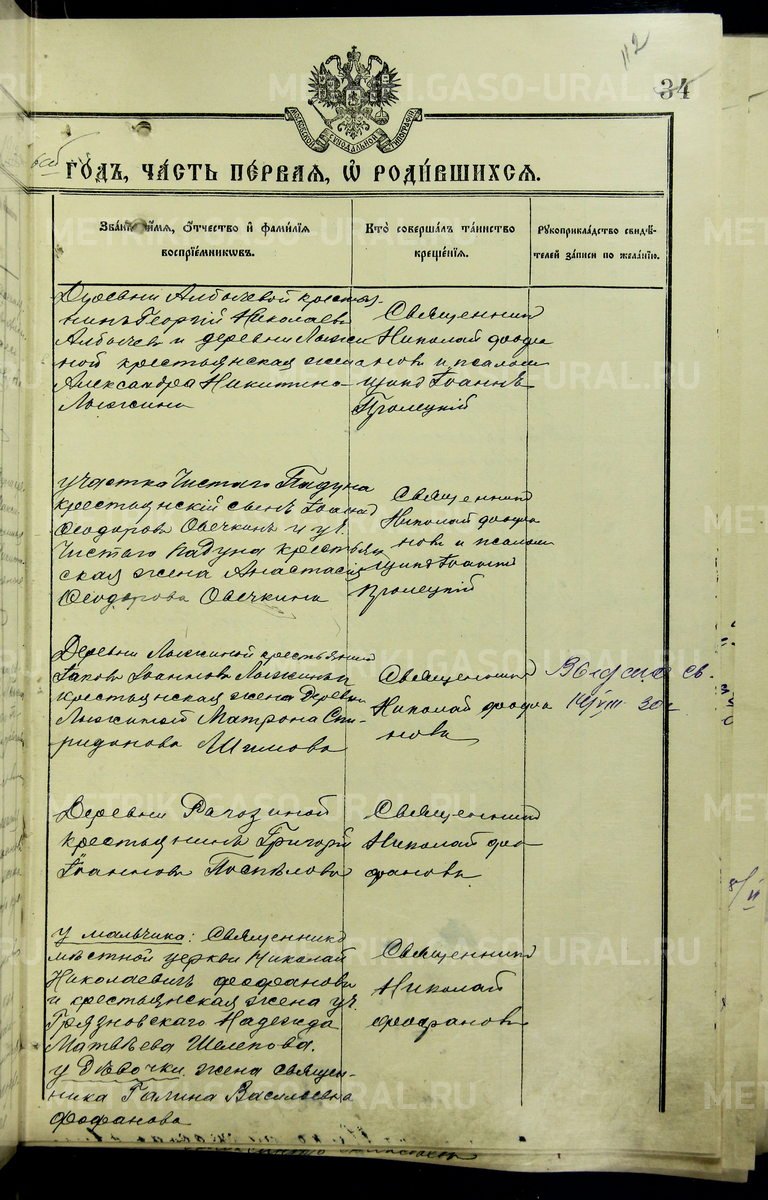 112
34
МОСКОВСКОЙ СУНОДАЛЬНОЙ ТИПОГРАФIИ
го́дъ, ча́сть пе́рвая, ѡ҆ роди́вшихсѧ.
Зва́нїе, и҆́мѧ, ѻ҆́тчество и҆ фами́лїѧ
воспрїе́мникѡвъ.
Кто̀ соверша́лъ та́инство
креще́нїѧ.
Рꙋкоприкла́дство свидѣ́-
телей за́писи по жела́нїю.
Деревни Албычевой крестья-
нинъ Георгій Николаевъ
Албычевъ и деревни Лыжи
ной крестьянская жена
Александра Никитина
Лыжина
Священникъ
Николай Феофа
новъ и псалом
щикъ Іоаннъ
участка Чистаго Падуна
крестьянскій сынъ Іоаннъ
Ѳеодоровъ Овечкинъ и уч.
Чистаго Падуна крестьян
ская жена Анастасія
Ѳеодорова Овечкина
Священникъ
Николай Феофа
новъ и псалом
щикъ Іоаннъ
Деревни Лыжиной крестьянинъ
Іаковъ Іоанновъ Лыжинъ и
крестьянская жена деревни
Лыжиной Матрона Спи-
ридонова Шимова
Священникъ
Николай Феофа
новъ
Выдано св.
14/VIII 30 г.
Деревни Рагозиной
крестьянинъ Григорій
Іоанновъ Поспѣловъ
Священникъ
Николай Фео
фановъ
У мальчика: Священникъ
мѣстной церкви Николай
Николаевичъ Феофановъ
и крестьянская жена уч.
Грязновскаго Надежда
Матвѣева Шелепова.
У дѣвочки жена священ-
ника Галина Васильевна
Феофанова
Священникъ
Николай
Феофановъ
METRIKI.GASO-URAL.RU